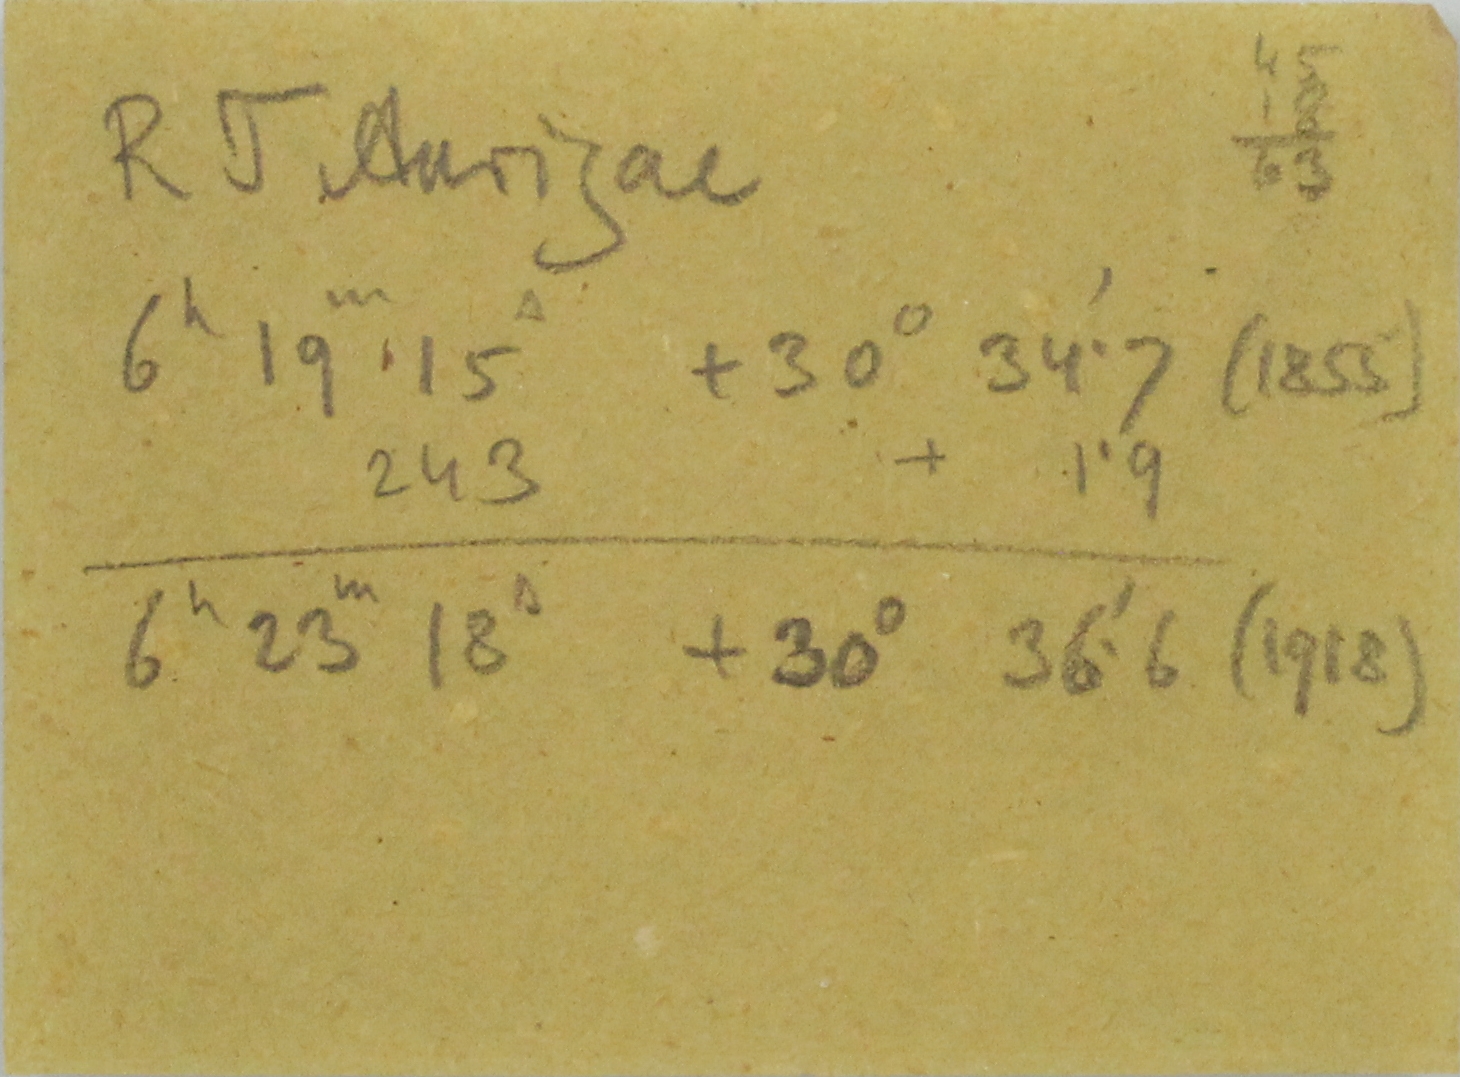 RT Aurigae
45
18
63
6h 19m 15s +30° 34'.7 (1855)
243 + 1.9
6h 23m 18s +30° 36'.6 (1918)